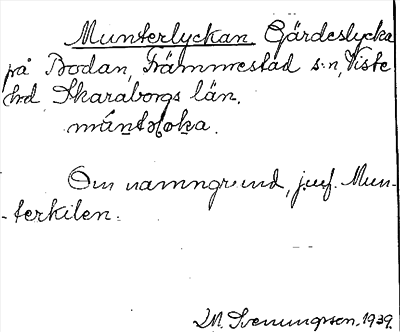 Munterlyckan Gärdeslycka
på Bodan, Främmestad s:n, Viste
hd Skaraborgs län.
Om namngrund, jmf. Mun-
-terkilen.
M. Svenungsson. 1939.